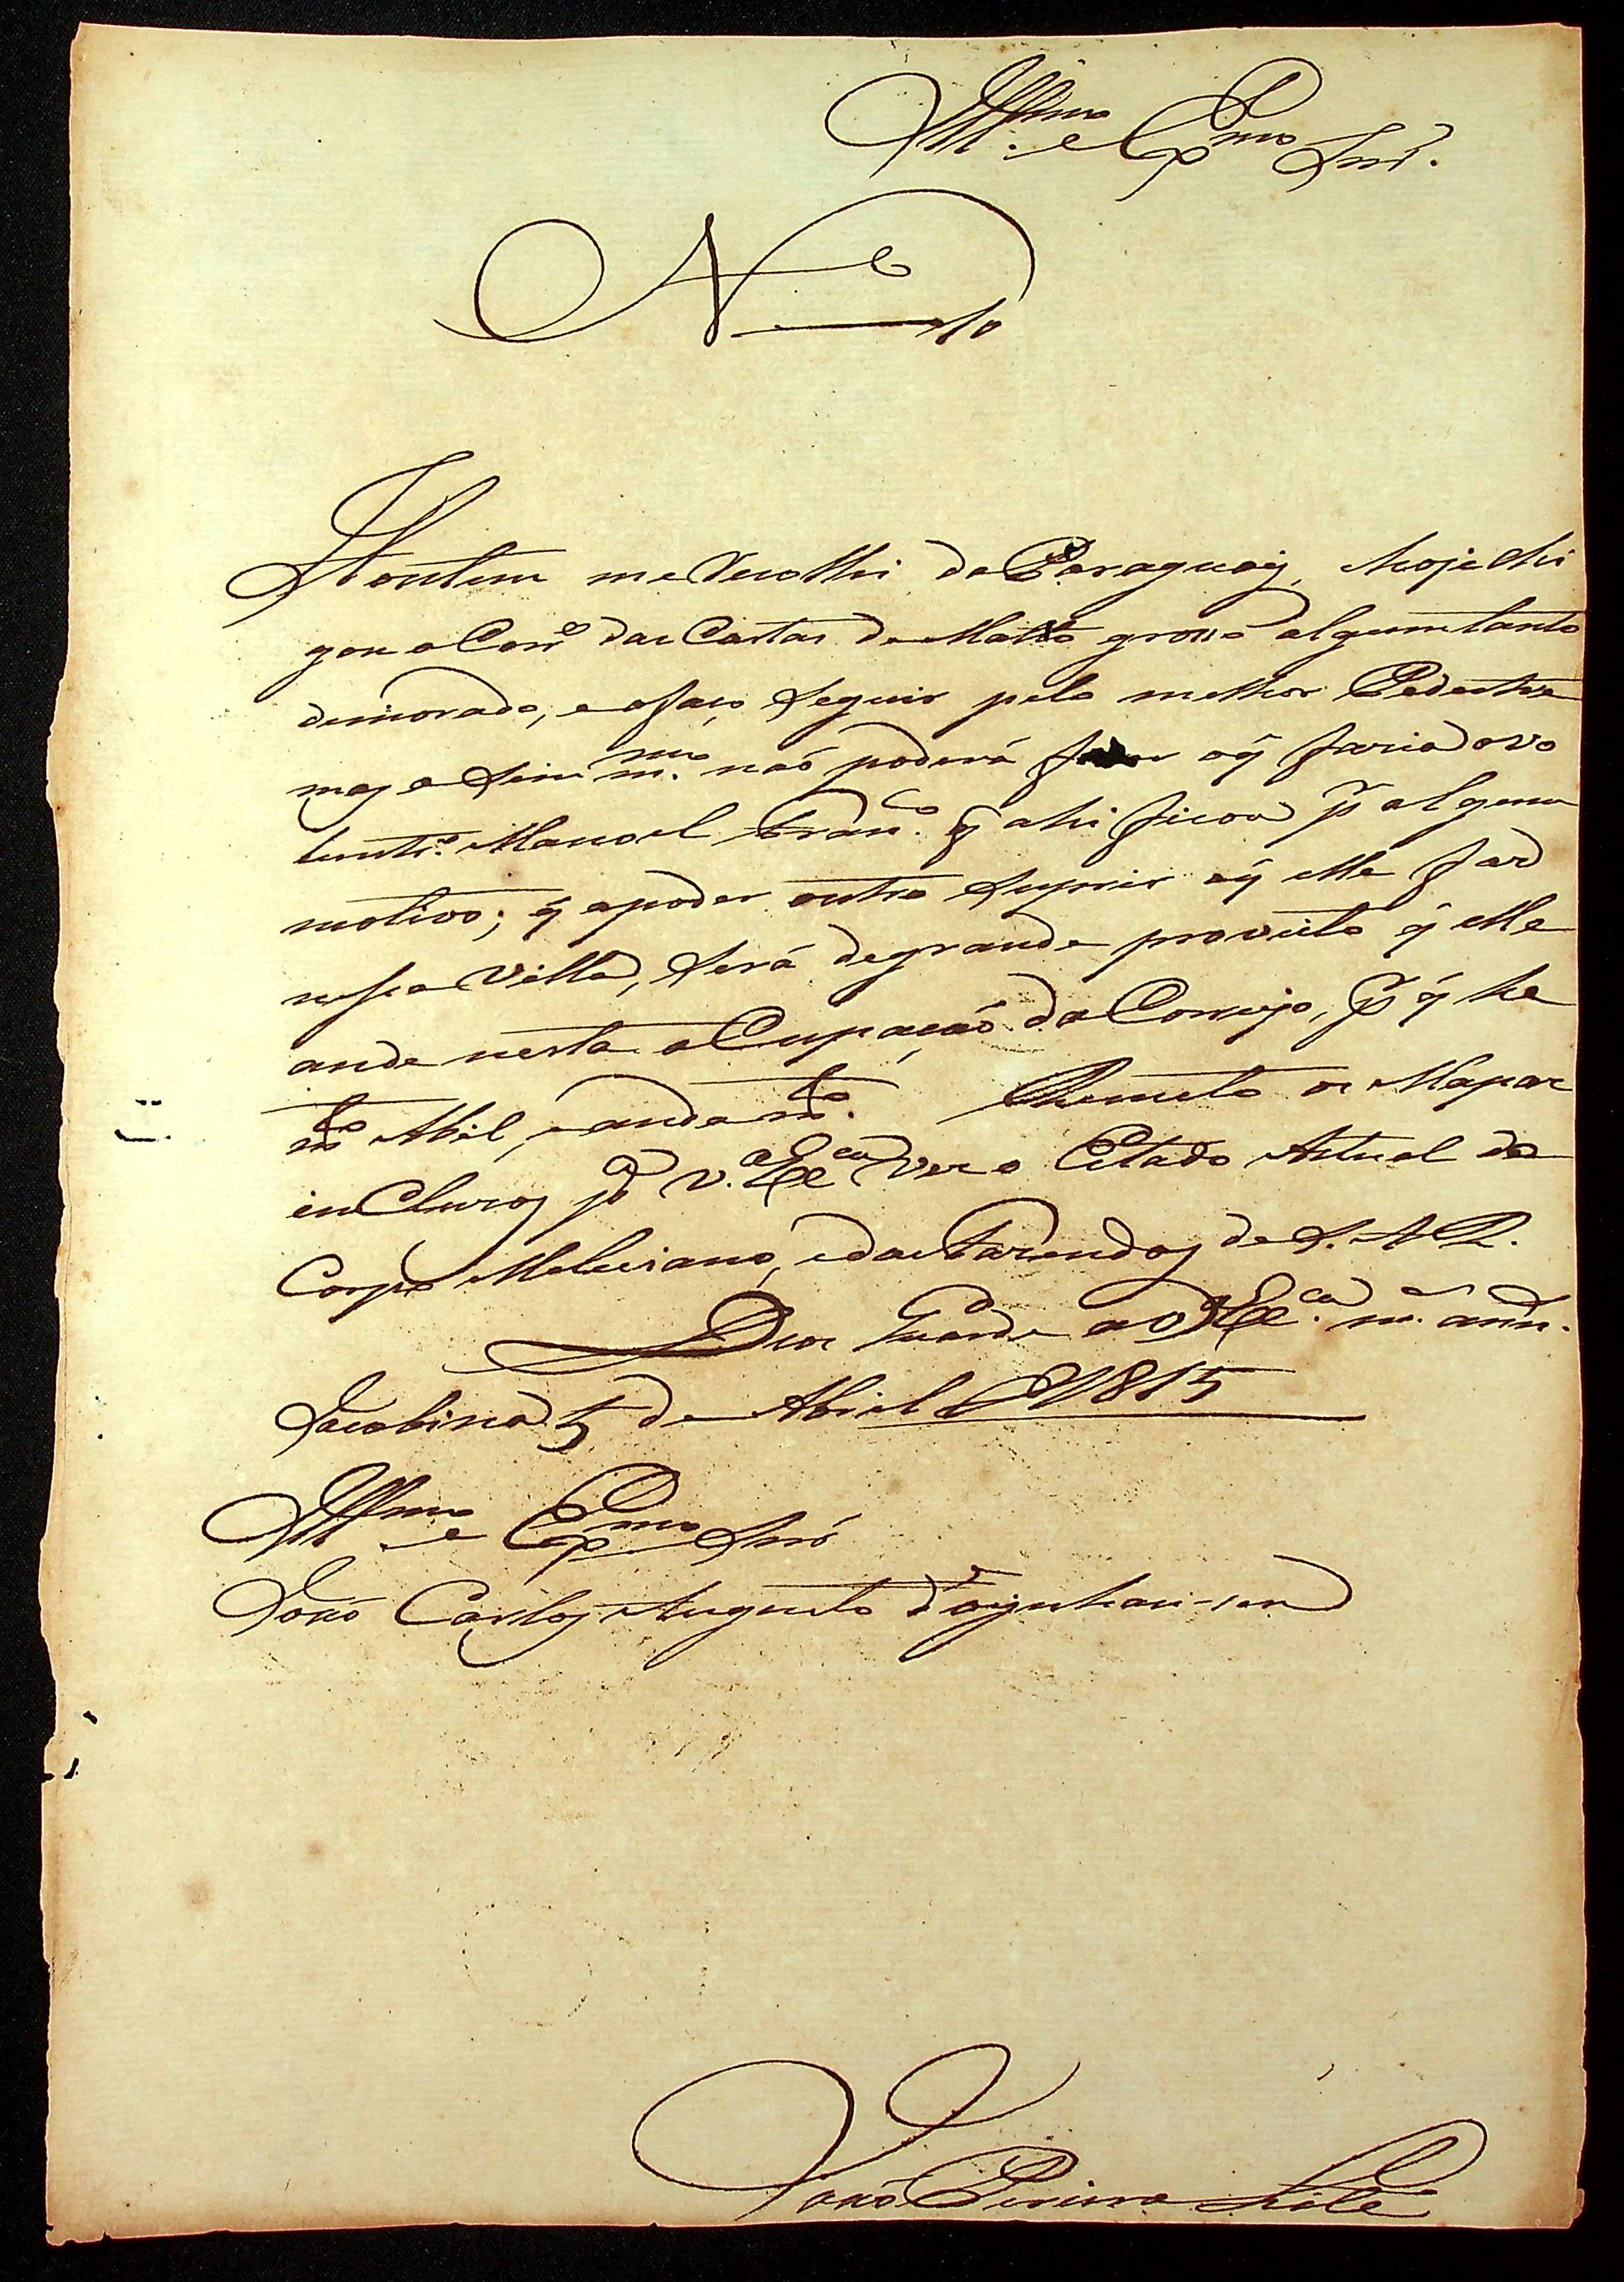 Illmo. e Exmo Snr.
N 10
Hontem me Recolhi do Paraguay, hoje che
gou o Corro das Cartas de Matto grosso algum tanto
demorado, e o faço Seguir pelo melhor Pedestre
mas a Sim mmo. não poderá fazer o q̃ faria o vo
luntro. Manoel Franco. q̃ ahi ficou pr algum
motivo; q̃ a poder outro Suprir o q̃ elle faz
nessa Villa, Será de grande proveito q̃ elle
ande nesta oCupação do Correio, pr q̃ he
mto Abil, e anda mto. Remeto os Mapas
incluzos pa V. Exca ver o Estado Actual do
Corpo Meliciano, e das Fazendas de S. A R.
Deos Guarde a V Exca. ms. anns.
Jacobina 5 de Abril d 1815
Illmo e Exmo Snr
João Carlos Augusto d'oeynhau-sen
João Pereira Leite